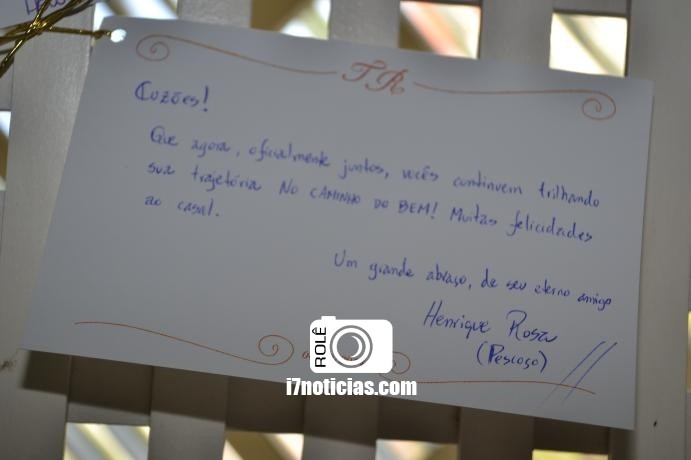 TR
Cuzões!
Que agora, oficialmente juntos, vocês continuem trilhando
sua trajetória NO CAMINHO DO BEM! Muitas felicidades
ao casal.
Um grande abraço, de seu eterno amigo
Henrique Rosa
(Pescoço)
ROLÊ
i7noticias.com